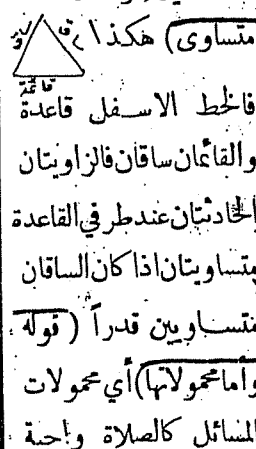 متساوى) هكذا
فالخط الاسفل قاعدة
والقائمان ساقان فالزاويتان
الحادثتان عند طرفي القاعدة
متساويتان اذا كان الساقان
متساويين قدراً (قوله
وأما محمولاتها) أي محمولات
المسائل كالصلاة واجبة